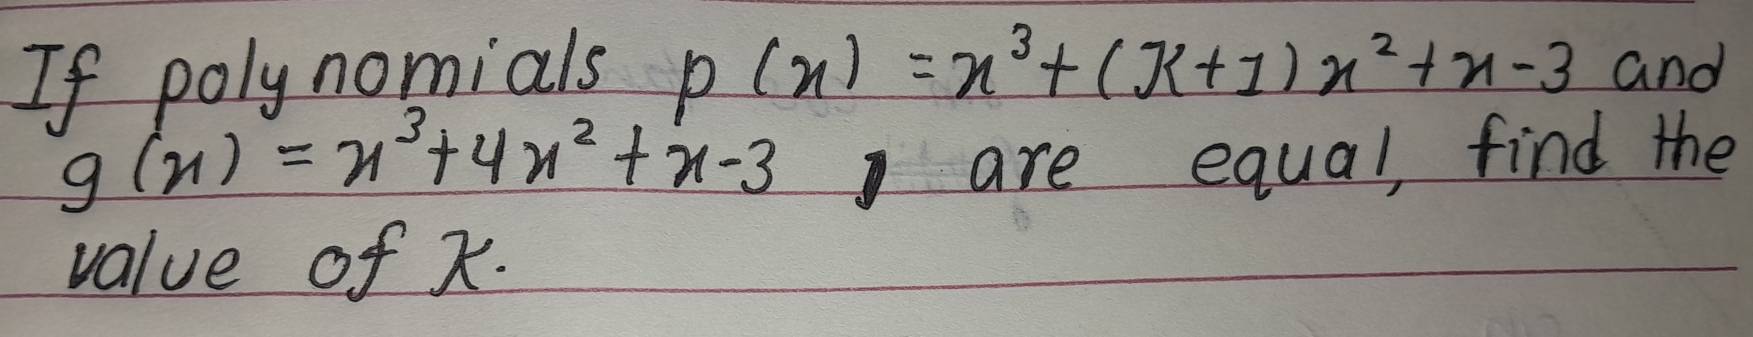 If polynomials p(x) = x³+(K+1)x²+x-3 and
g(x) = x³+4x²+x-3, are equal, find the
value of K.